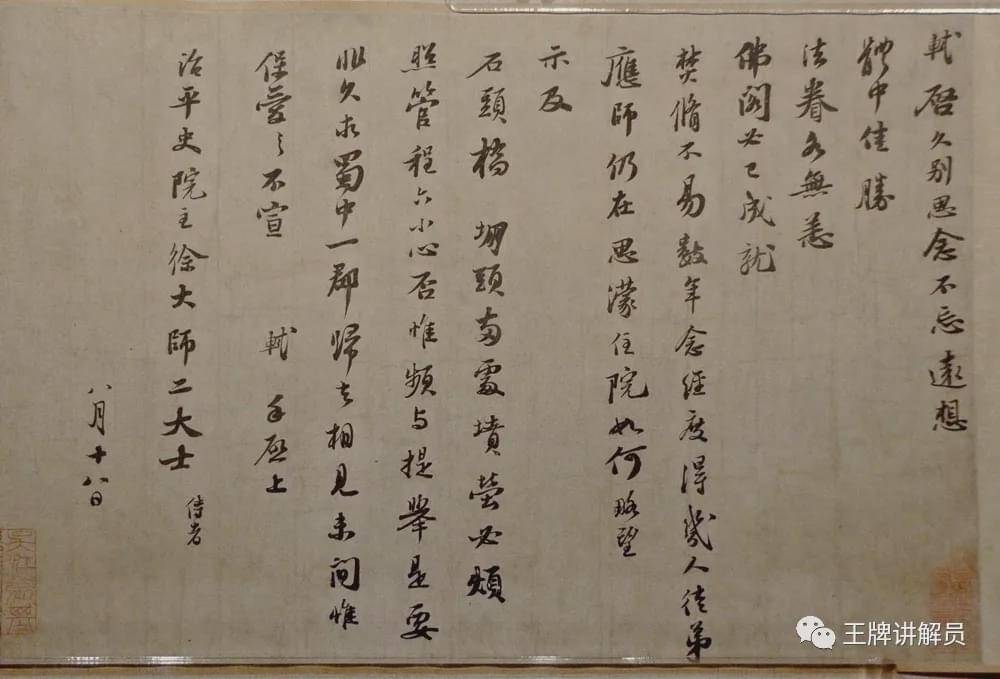 軾啓久别思念不忘遠想
體中佳勝
法眷各無恙
佛閣必已成就
焚脩不易數年念經度得幾人徒弟
應師仍在思濛住院如何略望
示及
石頭橋 堋頭兩處墳塋必煩
照管程六小心否惟頻与提舉是要
非久求蜀中一郡歸去相見未間惟
保愛之不宣 軾 手啓上
治平史院主徐大師二大士 侍者
八月十八日
王牌讲解员